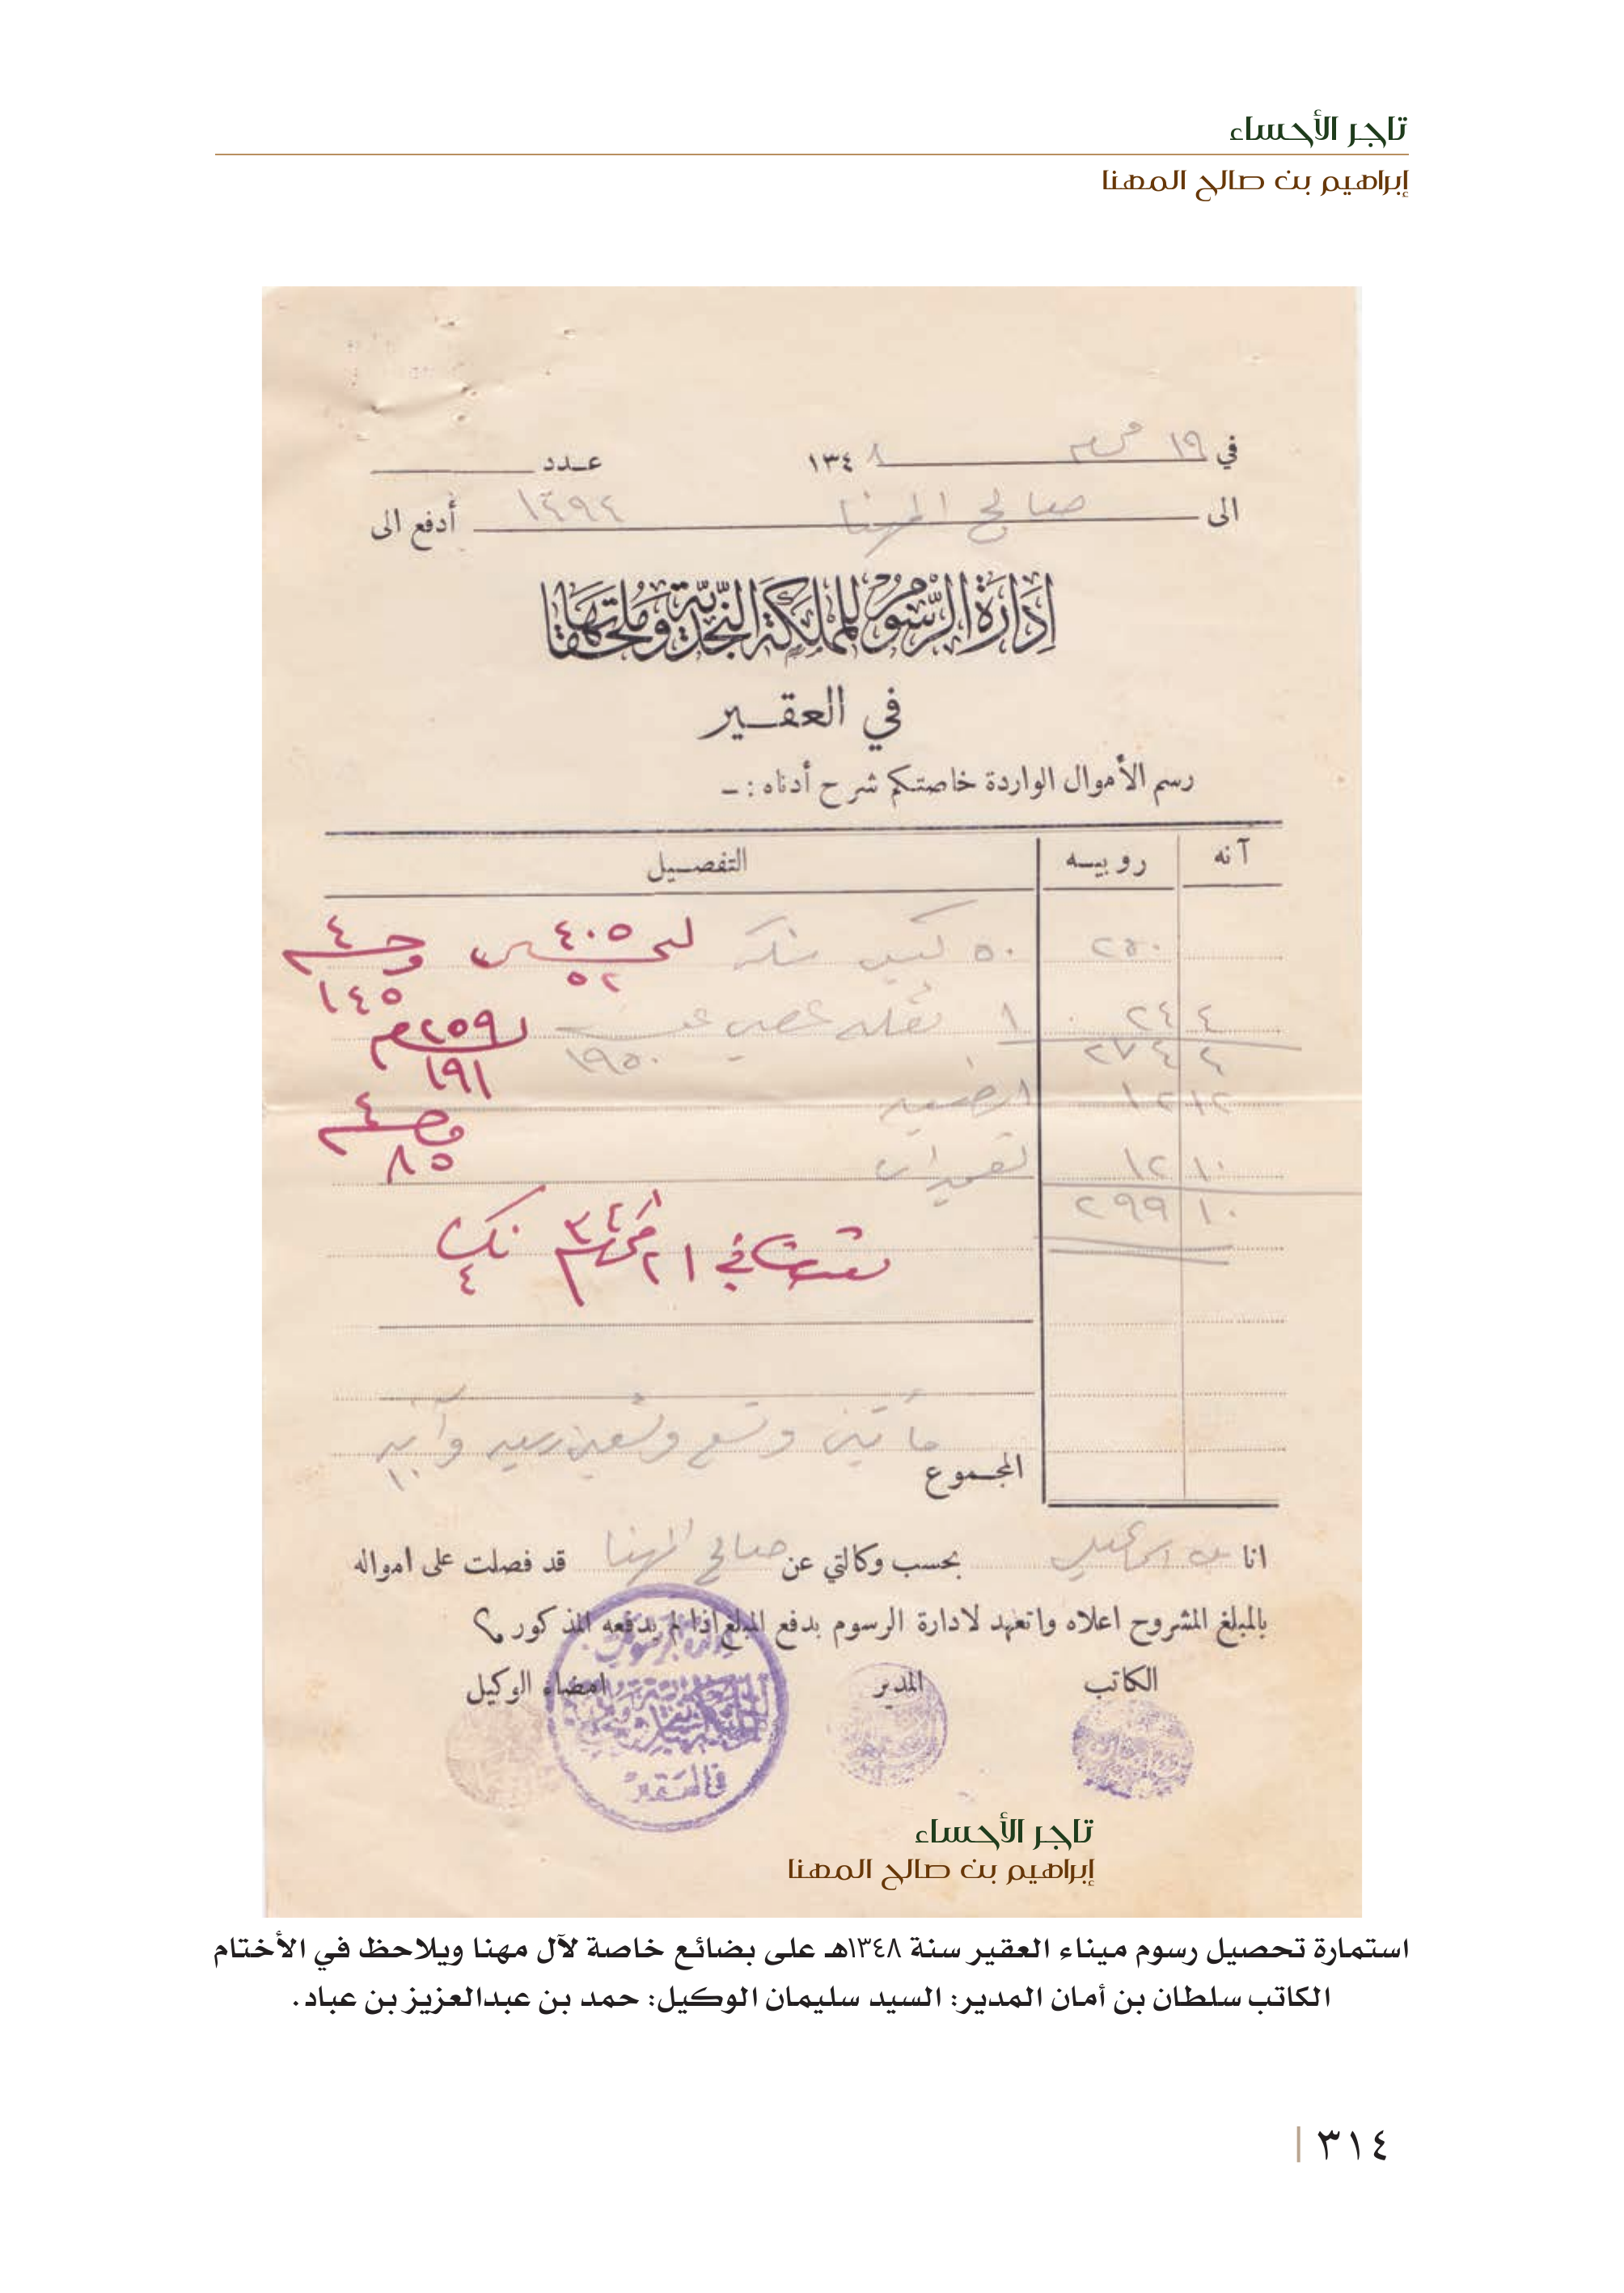 تاجر الأحساء
إبراهيم بن صالح المهنا
في ١٩ محرم ١٣٤٨ عدد
الى صالح المهنا ١٤٩٤ أدفع الى
إدارة الرسوم للمملكة النجدية وملحقاتها
في العقير
رسم الأموال الواردة خاصتكم شرح أدناه : –
آنه روبيه التفصيل
٢٥٠ ٥٠ كيس ٤٠٥ ٤
٥٢ ١٤٥
٤ ٢٤ ١ ٢٥٩
٤ ٢٧٤ ١٩٥٠ ١٩١
١٢ ١٢ ارضيه ٤
٨٥
١٠ ١٢
١٠ ٢٩٩
في ٢١ محرم
٤
مأتين وتسع وتسعين ربيه وآنه ١٠
المجموع
انا بحسب وكالتي عن صالح المهنا قد فصلت على امواله
بالمبلغ المشروح اعلاه واتعهد لادارة الرسوم بدفع المبلغ اذا لم يدفعه المذكور
الكاتب المدير امضاء الوكيل
في العقير
تاجر الأحساء
إبراهيم بن صالح المهنا
استمارة تحصيل رسوم ميناء العقير سنة ١٣٤٨هـ على بضائع خاصة لآل مهنا ويلاحظ في الأختام
الكاتب سلطان بن أمان المدير: السيد سليمان الوكيل: حمد بن عبدالعزيز بن عباد.
٣١٤